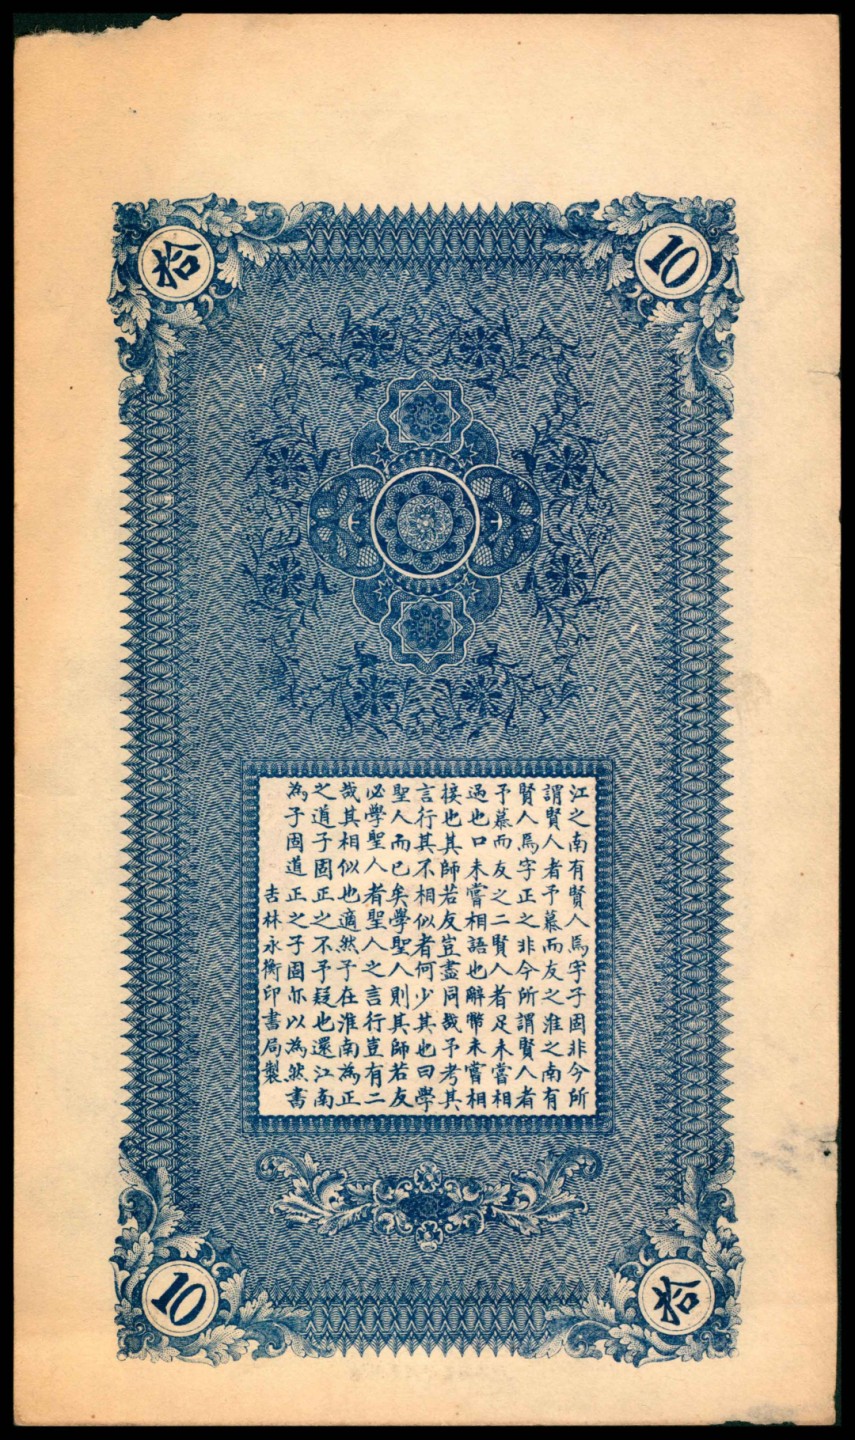 拾
10
江之南有賢人焉字子固非今所
謂賢人者予慕而友之淮之南有
賢人焉字正之非今所謂賢人者
予慕而友之二賢人者足未嘗相
過也口未嘗相語也辭幣未嘗相
接也其師若友豈盡同哉予考其
言行其不相似者何少其也曰學
聖人而已矣學聖人則其師若友
必學聖人者聖人之言行豈有二
哉其相似也適然予在淮南為正
之道子固正之不予疑也還江南
為子固道正之子固亦以為然書
吉林永衡印書局製
10
拾